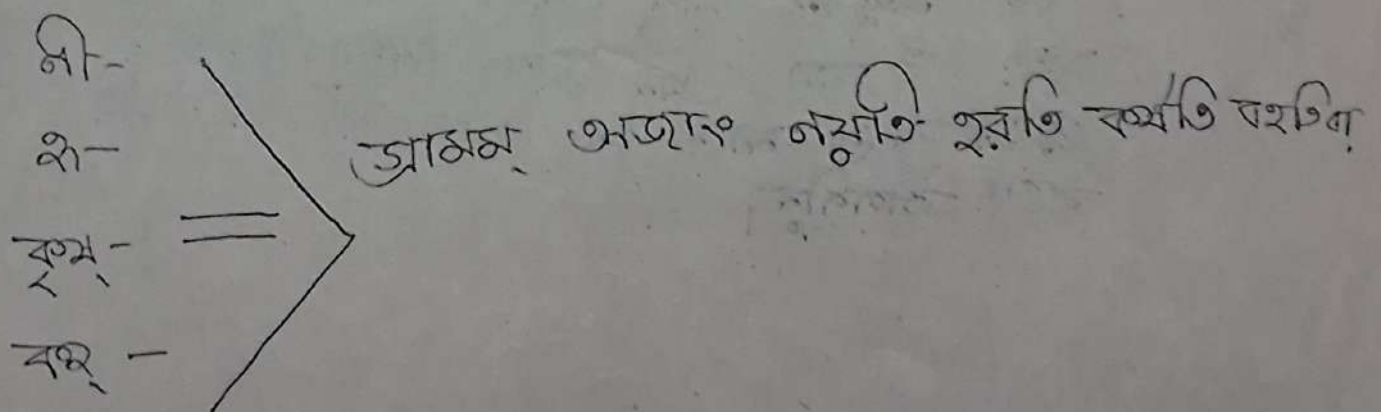 নী-
হৃ-
কৃষ্-
বহ্ -
=
গ্রামম্ অজাং নয়তি হরতি কর্ষতি বহতি বা